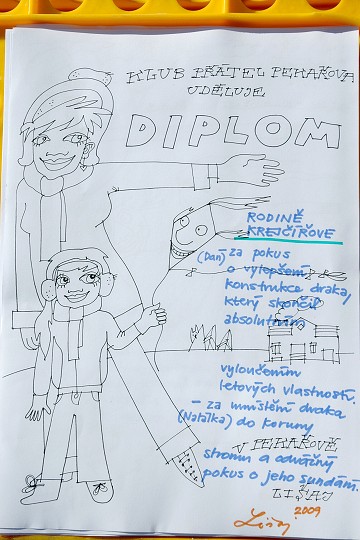 KLUB PŘÁTEL PEKAŘOVA
UDĚLUJE
DIPLOM
RODINĚ
KREJČÍŘOVE
(Dan) za pokus
o vylepšení
konstrukce draka,
který skončil
absolutním
vyloučením
letových vlastností.
- za umístění draka
(Natálka) do koruny
V PEKAŘOVĚ
stromu a odvážný
pokus o jeho sundání.
LIŠAJ
Lišaj 2009